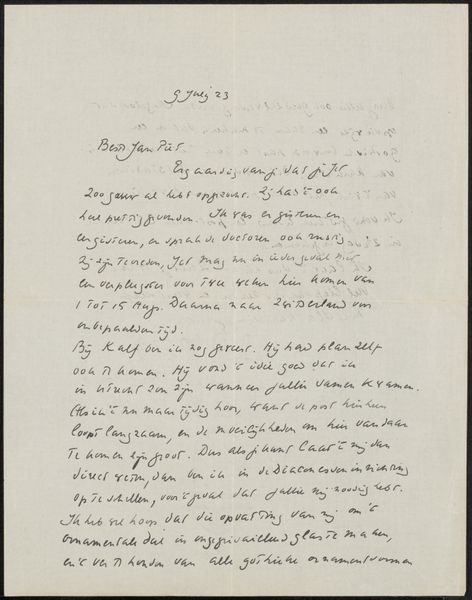 9 July 23
Beste Jan Piet
Erg aardig van je dat je Jet
zoo gauw al hebt opgezocht. Zij had 't ook
heel prettig gevonden. Ik was er gisteren en
eergisteren, en sprak de doctoren ook
Zij zijn tevreden, Jet mag nu in ieder geval met
een verpleegster voor twee weken hier komen van
1 tot 15 Aug. Daarna naar Zwitserland voor
onbepaalden tijd.
Bij Kalf ben ik nog geweest. Hij had plan zelf
ook te komen. Hij vond 't idee goed dat ik
in Utrecht zou zijn wanneer jullie samen kwamen.
Als ik 't nu maar tijdig hoor, want de post hierheen
loopt langzaam, en de moeilijkheden om hier vandaan
te komen zijn groot. Dus als je kunt laat 't mij dan
direct weten, dan ben ik in de Diaconessen inrichting
op te schellen, voor 't geval dat jullie mij noodig hebt.
Ik heb wel hoop dat die opvatting van mij om 't
ornamentale dat in ongebrandschilderd glas te maken,
en 't verhouden van alle gothieke ornamentvormen